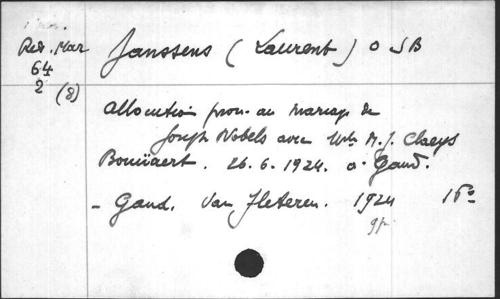 Rés. Mar
64
2 (8)
Janssens (Laurent) O S B
allocution pron. au mariage de
Joseph Nobels avec Mlle M. J. Claeys
Bouüaert. 26.6.1924. à Gand.
- Gand. Van Fleteren. 1924 16º
9 p.